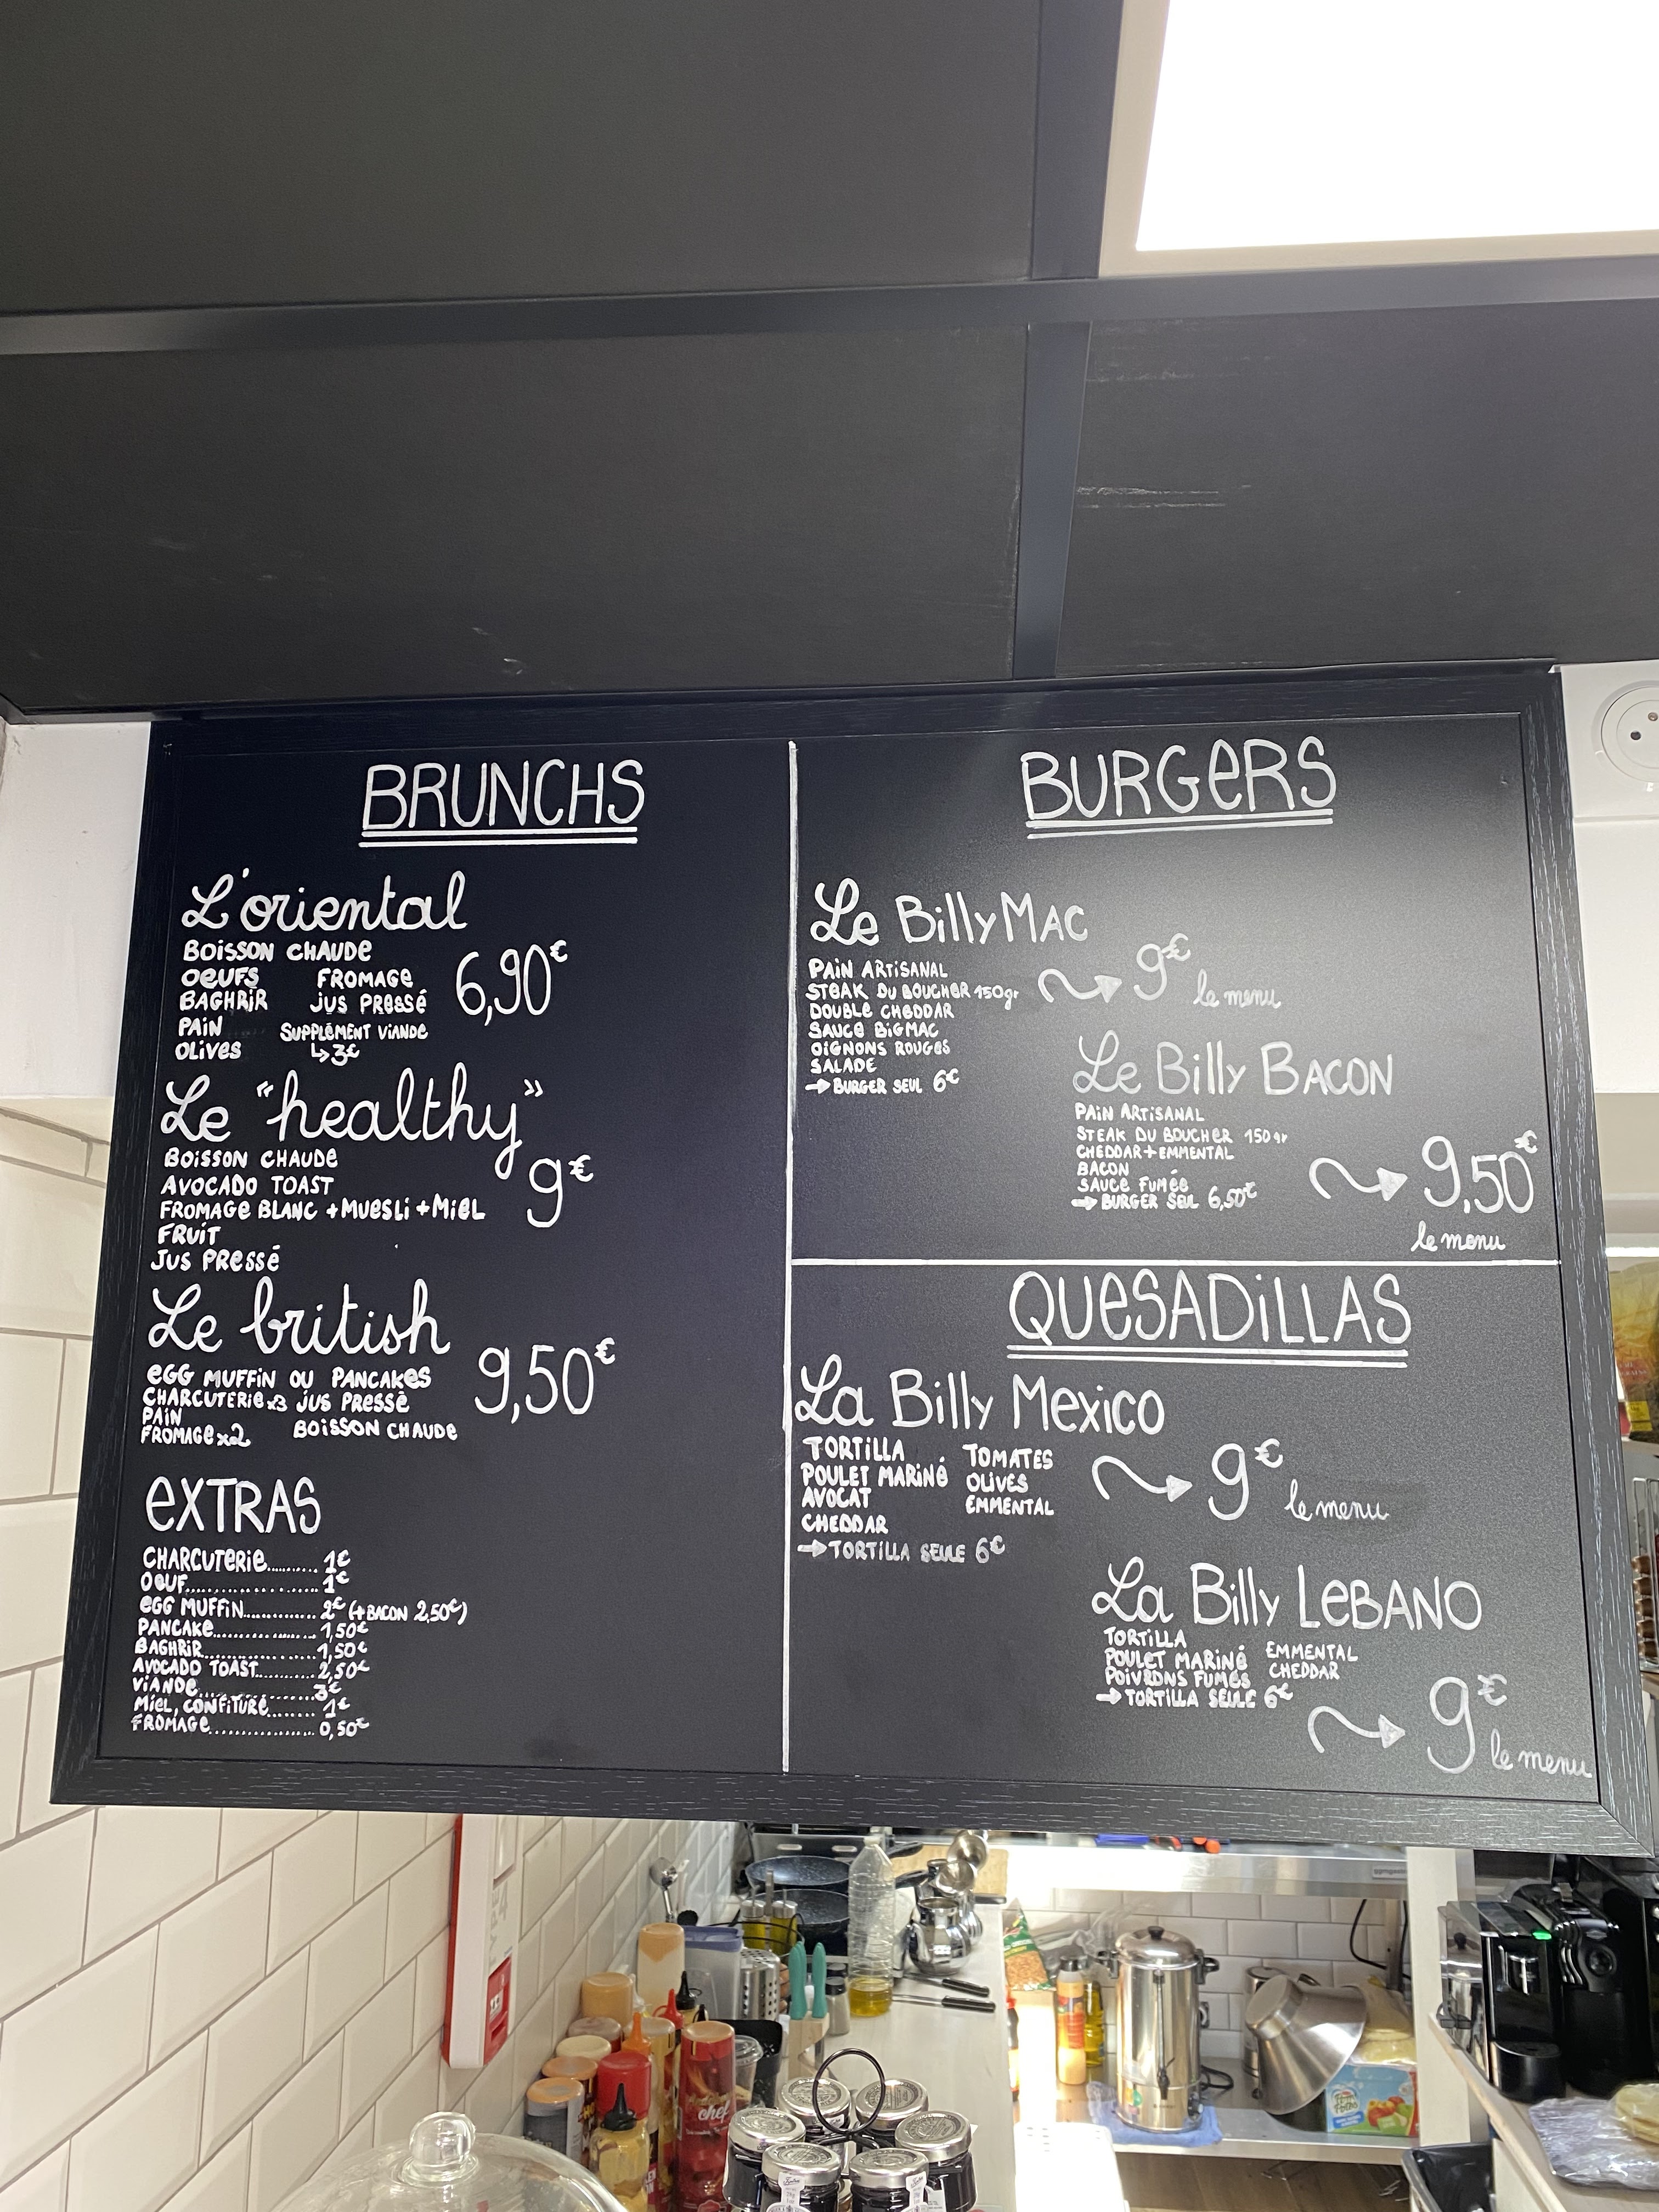 BRUNCHS
L'oriental
BOISSON CHAUDE
OEUFS FROMAGE
BAGHRIR JUS PRESSÉ
6,90€
PAIN SUPPLÉMENT VIANDE
OLIVES ↳3€
Le "healthy"
BOISSON CHAUDE
AVOCADO TOAST
9€
FROMAGE BLANC + MUESLI + MIEL
FRUIT
JUS PRESSÉ
Le british
EGG MUFFIN OU PANCAKES
9,50€
CHARCUTERIE x3 JUS PRESSÉ
PAIN
FROMAGE x2 BOISSON CHAUDE
EXTRAS
CHARCUTERIE.......... 1€
OEUF.................... 1€
EGG MUFFIN............. 2€ (+BACON 2,50€)
PANCAKE................ 1,50€
BAGHRIR................ 1,50€
AVOCADO TOAST.......... 2,50€
VIANDE................. 3€
MIEL, CONFITURE........ 1€
FROMAGE................ 0,50€
BURGERS
Le Billy MAC
PAIN ARTISANAL
STEAK DU BOUCHER 150gr
9€ le menu
DOUBLE CHEDDAR
SAUCE BIGMAC
OIGNONS ROUGES
SALADE
→ BURGER SEUL 6€
Le Billy BACON
PAIN ARTISANAL
STEAK DU BOUCHER 150gr
CHEDDAR + EMMENTAL
BACON
SAUCE FUMÉE
→ BURGER SEUL 6,50€
9,50€
le menu
QUESADILLAS
La Billy Mexico
TORTILLA TOMATES
POULET MARINÉ OLIVES
AVOCAT EMMENTAL
CHEDDAR
9€ le menu
→ TORTILLA SEULE 6€
La Billy LEBANO
TORTILLA
POULET MARINÉ EMMENTAL
POIVRONS FUMÉS CHEDDAR
→ TORTILLA SEULE 6€
9€ le menu
chef